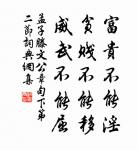 富貴不能淫
貧賤不能移
威武不能屈
孟子滕文公章句下第
二節詞典網集